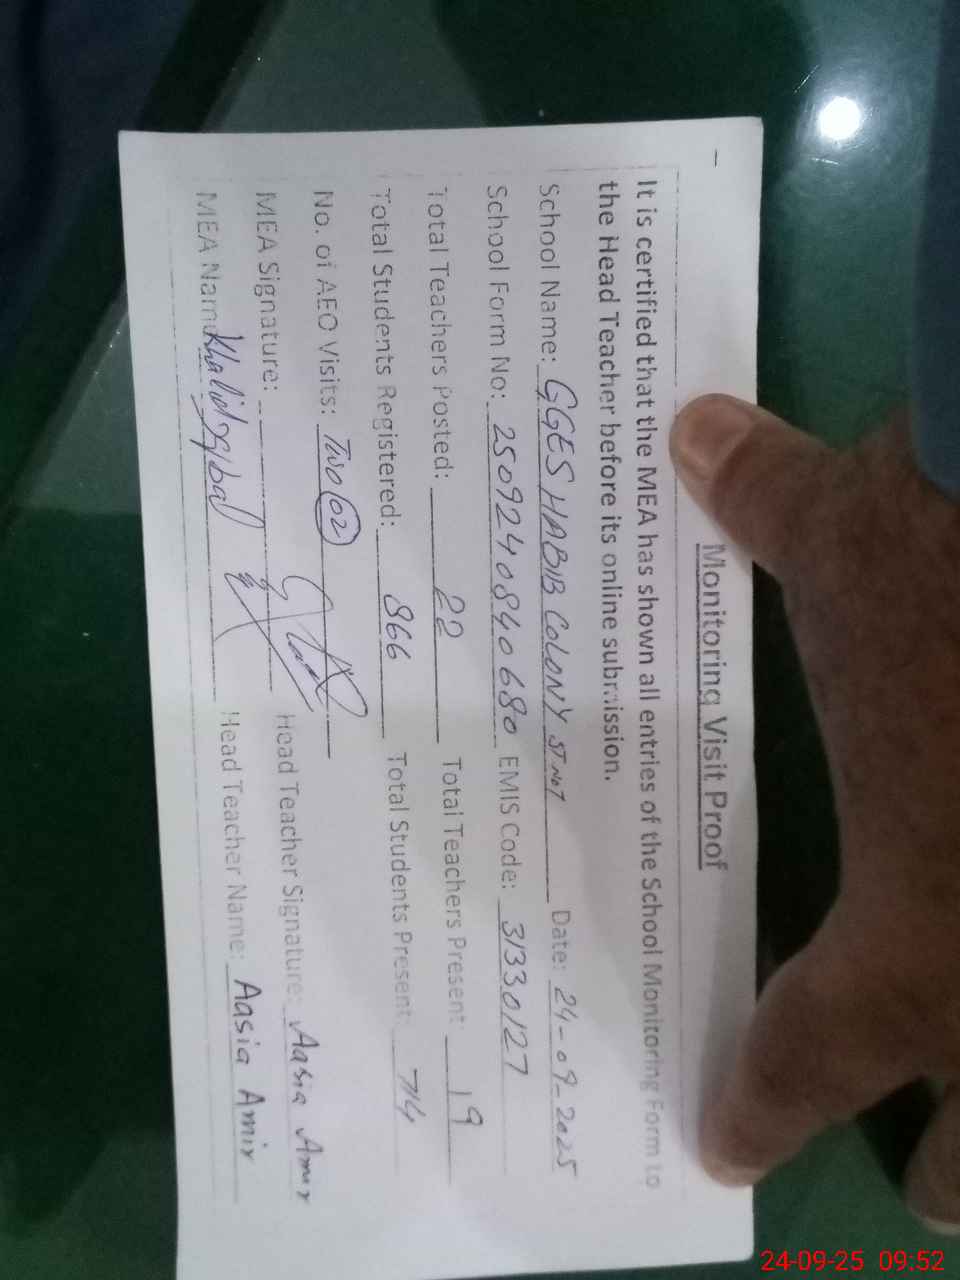 Monitoring Visit Proof
It is certified that the MEA has shown all entries of the School Monitoring Form to
the Head Teacher before its online submission.
School Name: GGES HABIB COLONY ST No 7 Date: 24-09-2025
School Form No: 2509240840680 EMIS Code: 31330127
Total Teachers Posted: 22 Total Teachers Present: 19
Total Students Registered: 866 Total Students Present: 714
No. of AEO Visits: Two 02
MEA Signature: Head Teacher Signature: Aasia Amir
MEA Name Khalid Iqbal Head Teacher Name: Aasia Amir
24-09-25 09:52